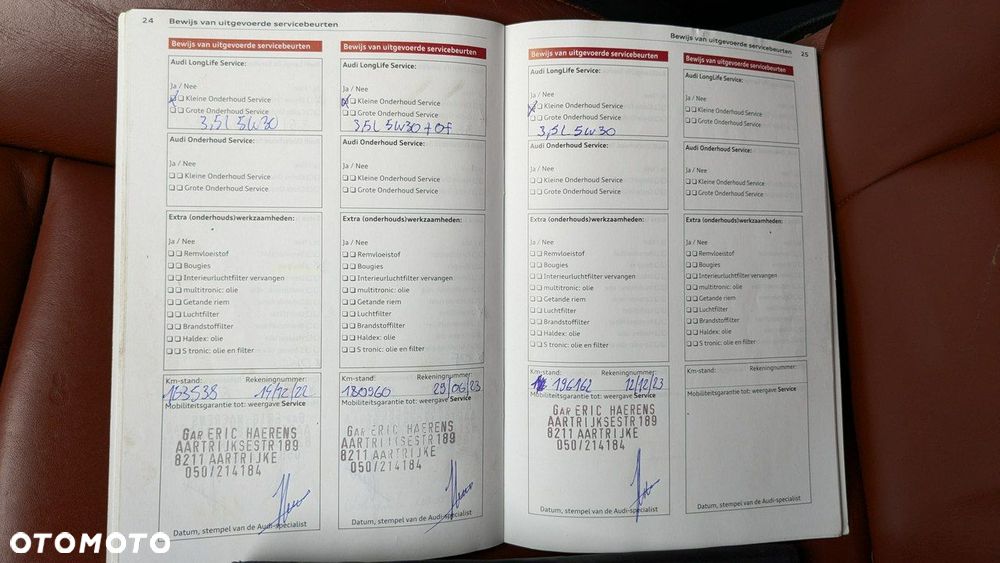 24 Bewijs van uitgevoerde servicebeurten
Bewijs van uitgevoerde servicebeurten
Audi LongLife Service:
Ja / Nee
Kleine Onderhoud Service
Grote Onderhoud Service
3,5l 5w30
Audi Onderhoud Service:
Ja / Nee
Kleine Onderhoud Service
Grote Onderhoud Service
Extra (onderhouds)werkzaamheden:
Ja / Nee
Remvloeistof
Bougies
Interieurluchtfilter vervangen
multitronic: olie
Getande riem
Luchtfilter
Brandstoffilter
Haldex: olie
S tronic: olie en filter
Km-stand: Rekeningnummer:
153538 14/12/22
Mobiliteitsgarantie tot: weergave Service
GAR ERIC HAERENS
AARTRIJKSESTR 189
8211 AARTRIJKE
050/214184
Datum, stempel van de Audi-specialist
Bewijs van uitgevoerde servicebeurten
Audi LongLife Service:
Ja / Nee
Kleine Onderhoud Service
Grote Onderhoud Service
3,5l 5w30 + of
Audi Onderhoud Service:
Ja / Nee
Kleine Onderhoud Service
Grote Onderhoud Service
Extra (onderhouds)werkzaamheden:
Ja / Nee
Remvloeistof
Bougies
Interieurluchtfilter vervangen
multitronic: olie
Getande riem
Luchtfilter
Brandstoffilter
Haldex: olie
S tronic: olie en filter
Km-stand: Rekeningnummer:
180960 29/06/23
Mobiliteitsgarantie tot: weergave Service
GAR ERIC HAERENS
AARTRIJKSESTR 189
8211 AARTRIJKE
050/214184
Datum, stempel van de Audi-specialist
Bewijs van uitgevoerde servicebeurten 25
Bewijs van uitgevoerde servicebeurten
Audi LongLife Service:
Ja / Nee
Kleine Onderhoud Service
Grote Onderhoud Service
3,5l 5w30
Audi Onderhoud Service:
Ja / Nee
Kleine Onderhoud Service
Grote Onderhoud Service
Extra (onderhouds)werkzaamheden:
Ja / Nee
Remvloeistof
Bougies
Interieurluchtfilter vervangen
multitronic: olie
Getande riem
Luchtfilter
Brandstoffilter
Haldex: olie
S tronic: olie en filter
Km-stand: Rekeningnummer:
196162 12/12/23
Mobiliteitsgarantie tot: weergave Service
GAR ERIC HAERENS
AARTRIJKSESTR 189
8211 AARTRIJKE
050/214184
Datum, stempel van de Audi-specialist
Bewijs van uitgevoerde servicebeurten
Audi LongLife Service:
Ja / Nee
Kleine Onderhoud Service
Grote Onderhoud Service
Audi Onderhoud Service:
Ja / Nee
Kleine Onderhoud Service
Grote Onderhoud Service
Extra (onderhouds)werkzaamheden:
Ja / Nee
Remvloeistof
Bougies
Interieurluchtfilter vervangen
multitronic: olie
Getande riem
Luchtfilter
Brandstoffilter
Haldex: olie
S tronic: olie en filter
Km-stand: Rekeningnummer:
Mobiliteitsgarantie tot: weergave Service
Datum, stempel van de Audi-specialist
OTOMOTO